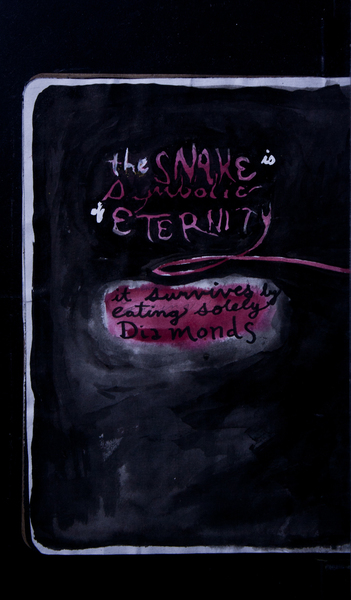 the SNAKE is
Symbolic
of ETERNITY
it survives by
eating solely
Diamonds